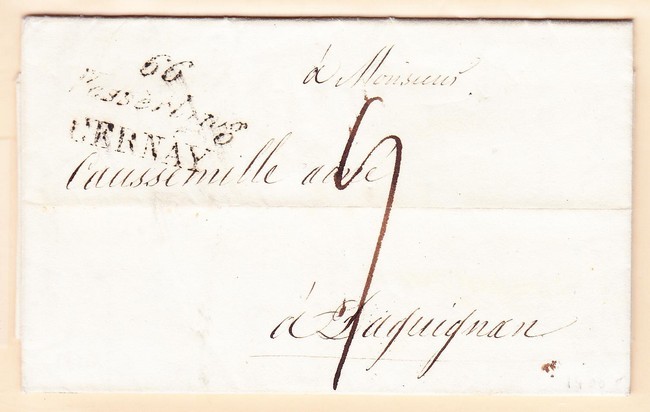 66
Wesserling
CERNAY
à Monsieur
Caussemille ainé
9
à Draguignan